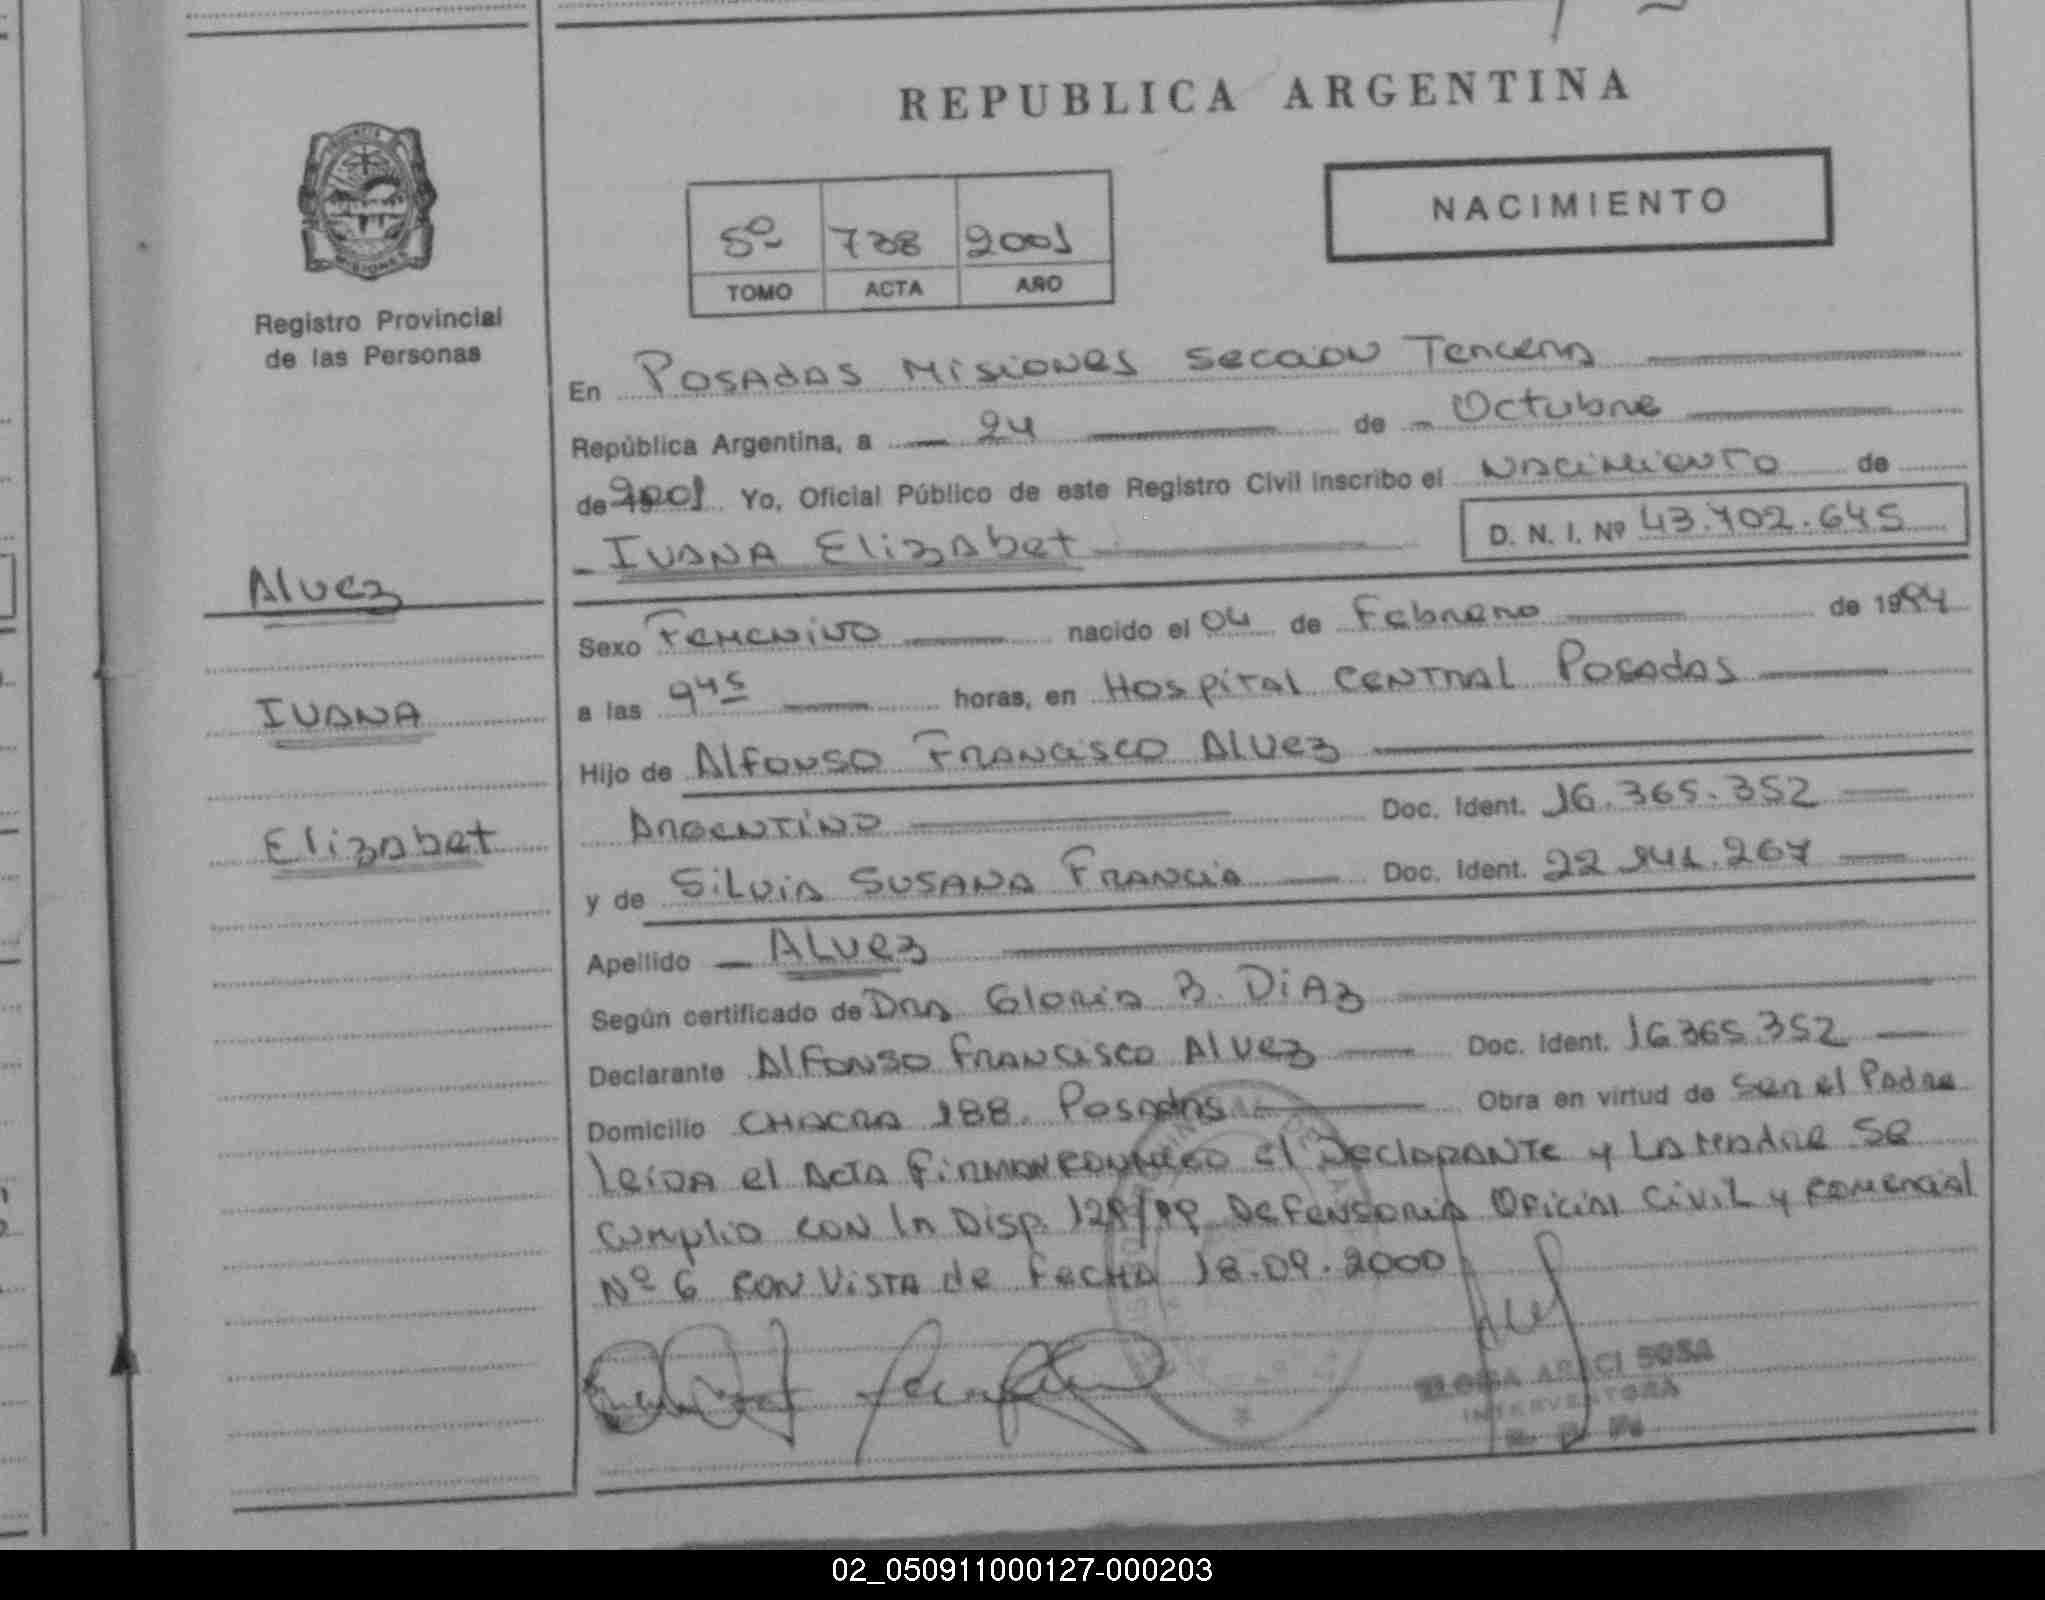 REPUBLICA ARGENTINA
NACIMIENTO
5º 738 2001
TOMO ACTA AÑO
Registro Provincial
de las Personas
En Posadas Misiones Seccion Tercera
República Argentina, a 24 de Octubre
de 2001 Yo, Oficial Público de este Registro Civil inscribo el Nacimiento de
Ivana Elizabet D. N. I. Nº 43.702.645
Alvez
Ivana
Elizabet
Sexo Femenino nacido el 04 de Febrero de 1994
a las 9 45 horas, en Hospital Central Posadas
Hijo de Alfonso Francisco Alvez
Argentino Doc. Ident. 16.365.352
y de Silvia Susana Francia Doc. Ident. 22.141.267
Apellido Alvez
Según certificado de Dra Gloria B. Diaz
Declarante Alfonso Francisco Alvez Doc. Ident. 16.365.352
Domicilio Chacra 188. Posadas Obra en virtud de Ser el Padre
Leida el Acta Firman el Declarante y La Madre Se
cumplio con la Disp. 129/99 Defensoria Oficial Civil y Comercial
Nº 6 con vista de Fecha 18.09.2000
ARACI SOSA
INTERVENTORA
02_050911000127-000203